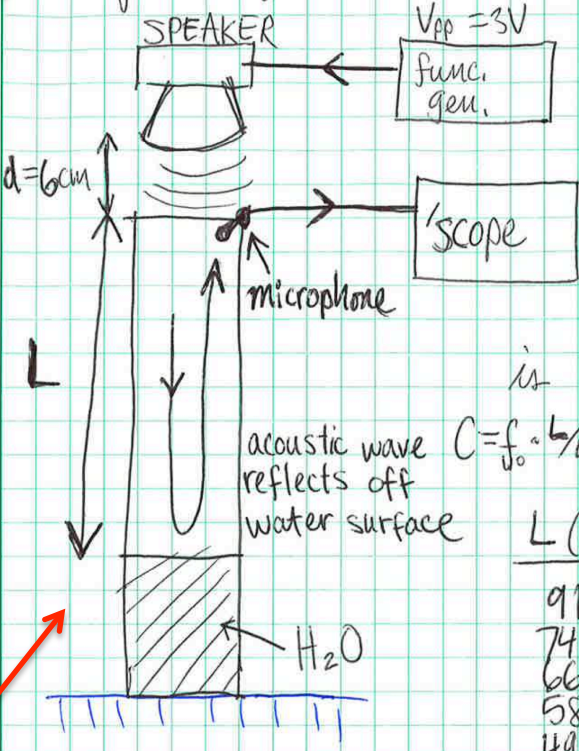 SPEAKER
Vpp = 3V
func.
gen.
d=6cm
'scope
microphone
L
is
acoustic wave
reflects off
water surface
C = f₀ ·
L (
74
66
58
H₂O